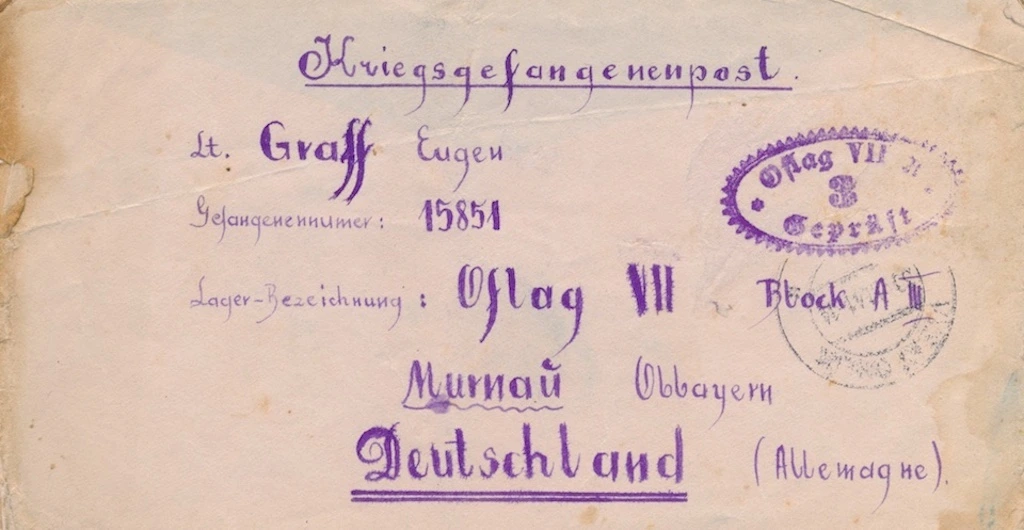 Kriegsgefangenenpost.
Lt. Graff Eugen
Gefangenennumer: 15851
Lager-Bezeichnung: Oflag VII Block A III
Murnaŭ Obbayern
Deutschland (Allemagne).
Oflag VII
3
Geprüft